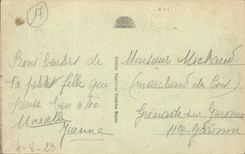 A
Bons baisers de
ta petite fille qui
pense bien à toi
Jeanne
4-8-23
Monsieur Michaud
(marchand de bois)
Grenade sur Garonne
Hte Garonne